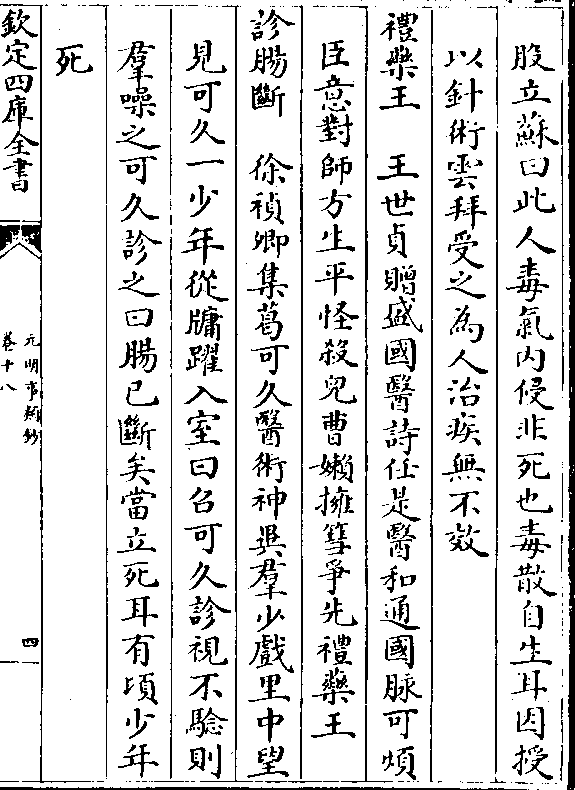 股立蘇曰此人毒氣内侵非死也毒散自生耳因授
以針術雲拜受之為人治疾無不效
禮藥王　王世貞贈盛國醫詩任是醫和通國脉可煩
臣意對師方生平怪殺兒曹嬾擁篲爭先禮藥王
診腸斷　徐禎卿集葛可久醫術神異羣少戲里中望
見可久一少年從牗躍入室曰召可久診視不驗則
羣噪之可久診之曰腸已斷矣當立死耳有頃少年
死
欽定四庫全書
元明事類鈔
卷十八
四